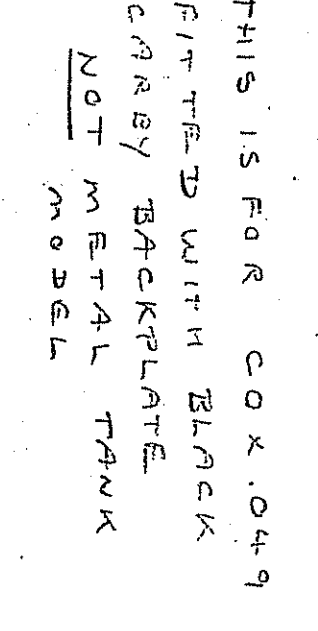 THIS IS FOR COX .049
FITTED WITH BLACK
CARBY BACKPLATE
NOT METAL TANK
MODEL